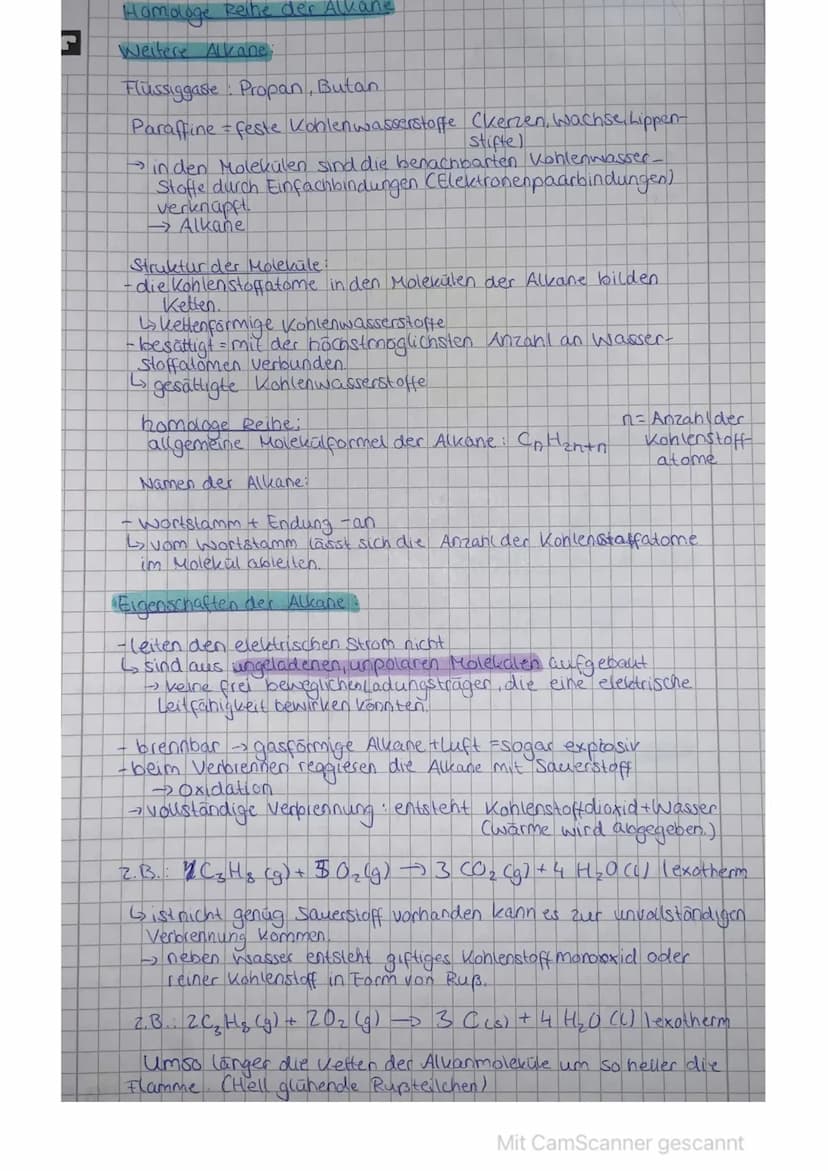 Homologe Reihe der Alkane
Weitere Alkane:
Flüssiggase: Propan, Butan
Paraffine = feste Kohlenwasserstoffe (Kerzen, Wachse, Lippen-
stifte)
→ in den Molekülen sind die benachbarten Kohlenwasser-
stoffe durch Einfachbindungen (Elektronenpaarbindungen)
verknüpft.
→ Alkane
Struktur der Moleküle:
- die Kohlenstoffatome in den Molekülen der Alkane bilden
Ketten.
↳ kettenförmige Kohlenwasserstoffe
- besättigt = mit der höchstmöglichsten Anzahl an Wasser-
stoffatomen verbunden.
↳ gesättigte Kohlenwasserstoffe
homologe Reihe:
n = Anzahl der
allgemeine Molekülformel der Alkane: CnH2n+n Kohlenstoff-
atome
Namen der Alkane:
- Wortstamm + Endung -an
↳ vom Wortstamm lässt sich die Anzahl der Kohlenstoffatome
im Molekül ableiten.
Eigenschaften der Alkane:
- leiten den elektrischen Strom nicht
↳ sind aus ungeladenen, unpolaren Molekülen aufgebaut
→ keine frei beweglichen Ladungsträger, die eine elektrische
Leitfähigkeit bewirken könnten.
- brennbar → gasförmige Alkane + Luft = sogar explosiv
- beim Verbrennen reagieren die Alkane mit Sauerstoff
→ Oxidation
→ vollständige Verbrennung: entsteht Kohlenstoffdioxid + Wasser
(Wärme wird abgegeben.)
z.B.: 1C3H8 (g) + 5 O2 (g) → 3 CO2 (g) + 4 H2O (l) lexotherm
↳ ist nicht genug Sauerstoff vorhanden kann es zur unvollständigen
Verbrennung kommen.
→ neben Wasser entsteht giftiges Kohlenstoffmonooxid oder
reiner Kohlenstoff in Form von Ruß.
z.B.: 2C3H8 (g) + 2O2 (g) → 3 C(s) + 4 H2O (l) lexotherm
Umso länger die Ketten der Alkanmoleküle um so heller die
Flamme. (Hell glühende Rußteilchen)
Mit CamScanner gescannt